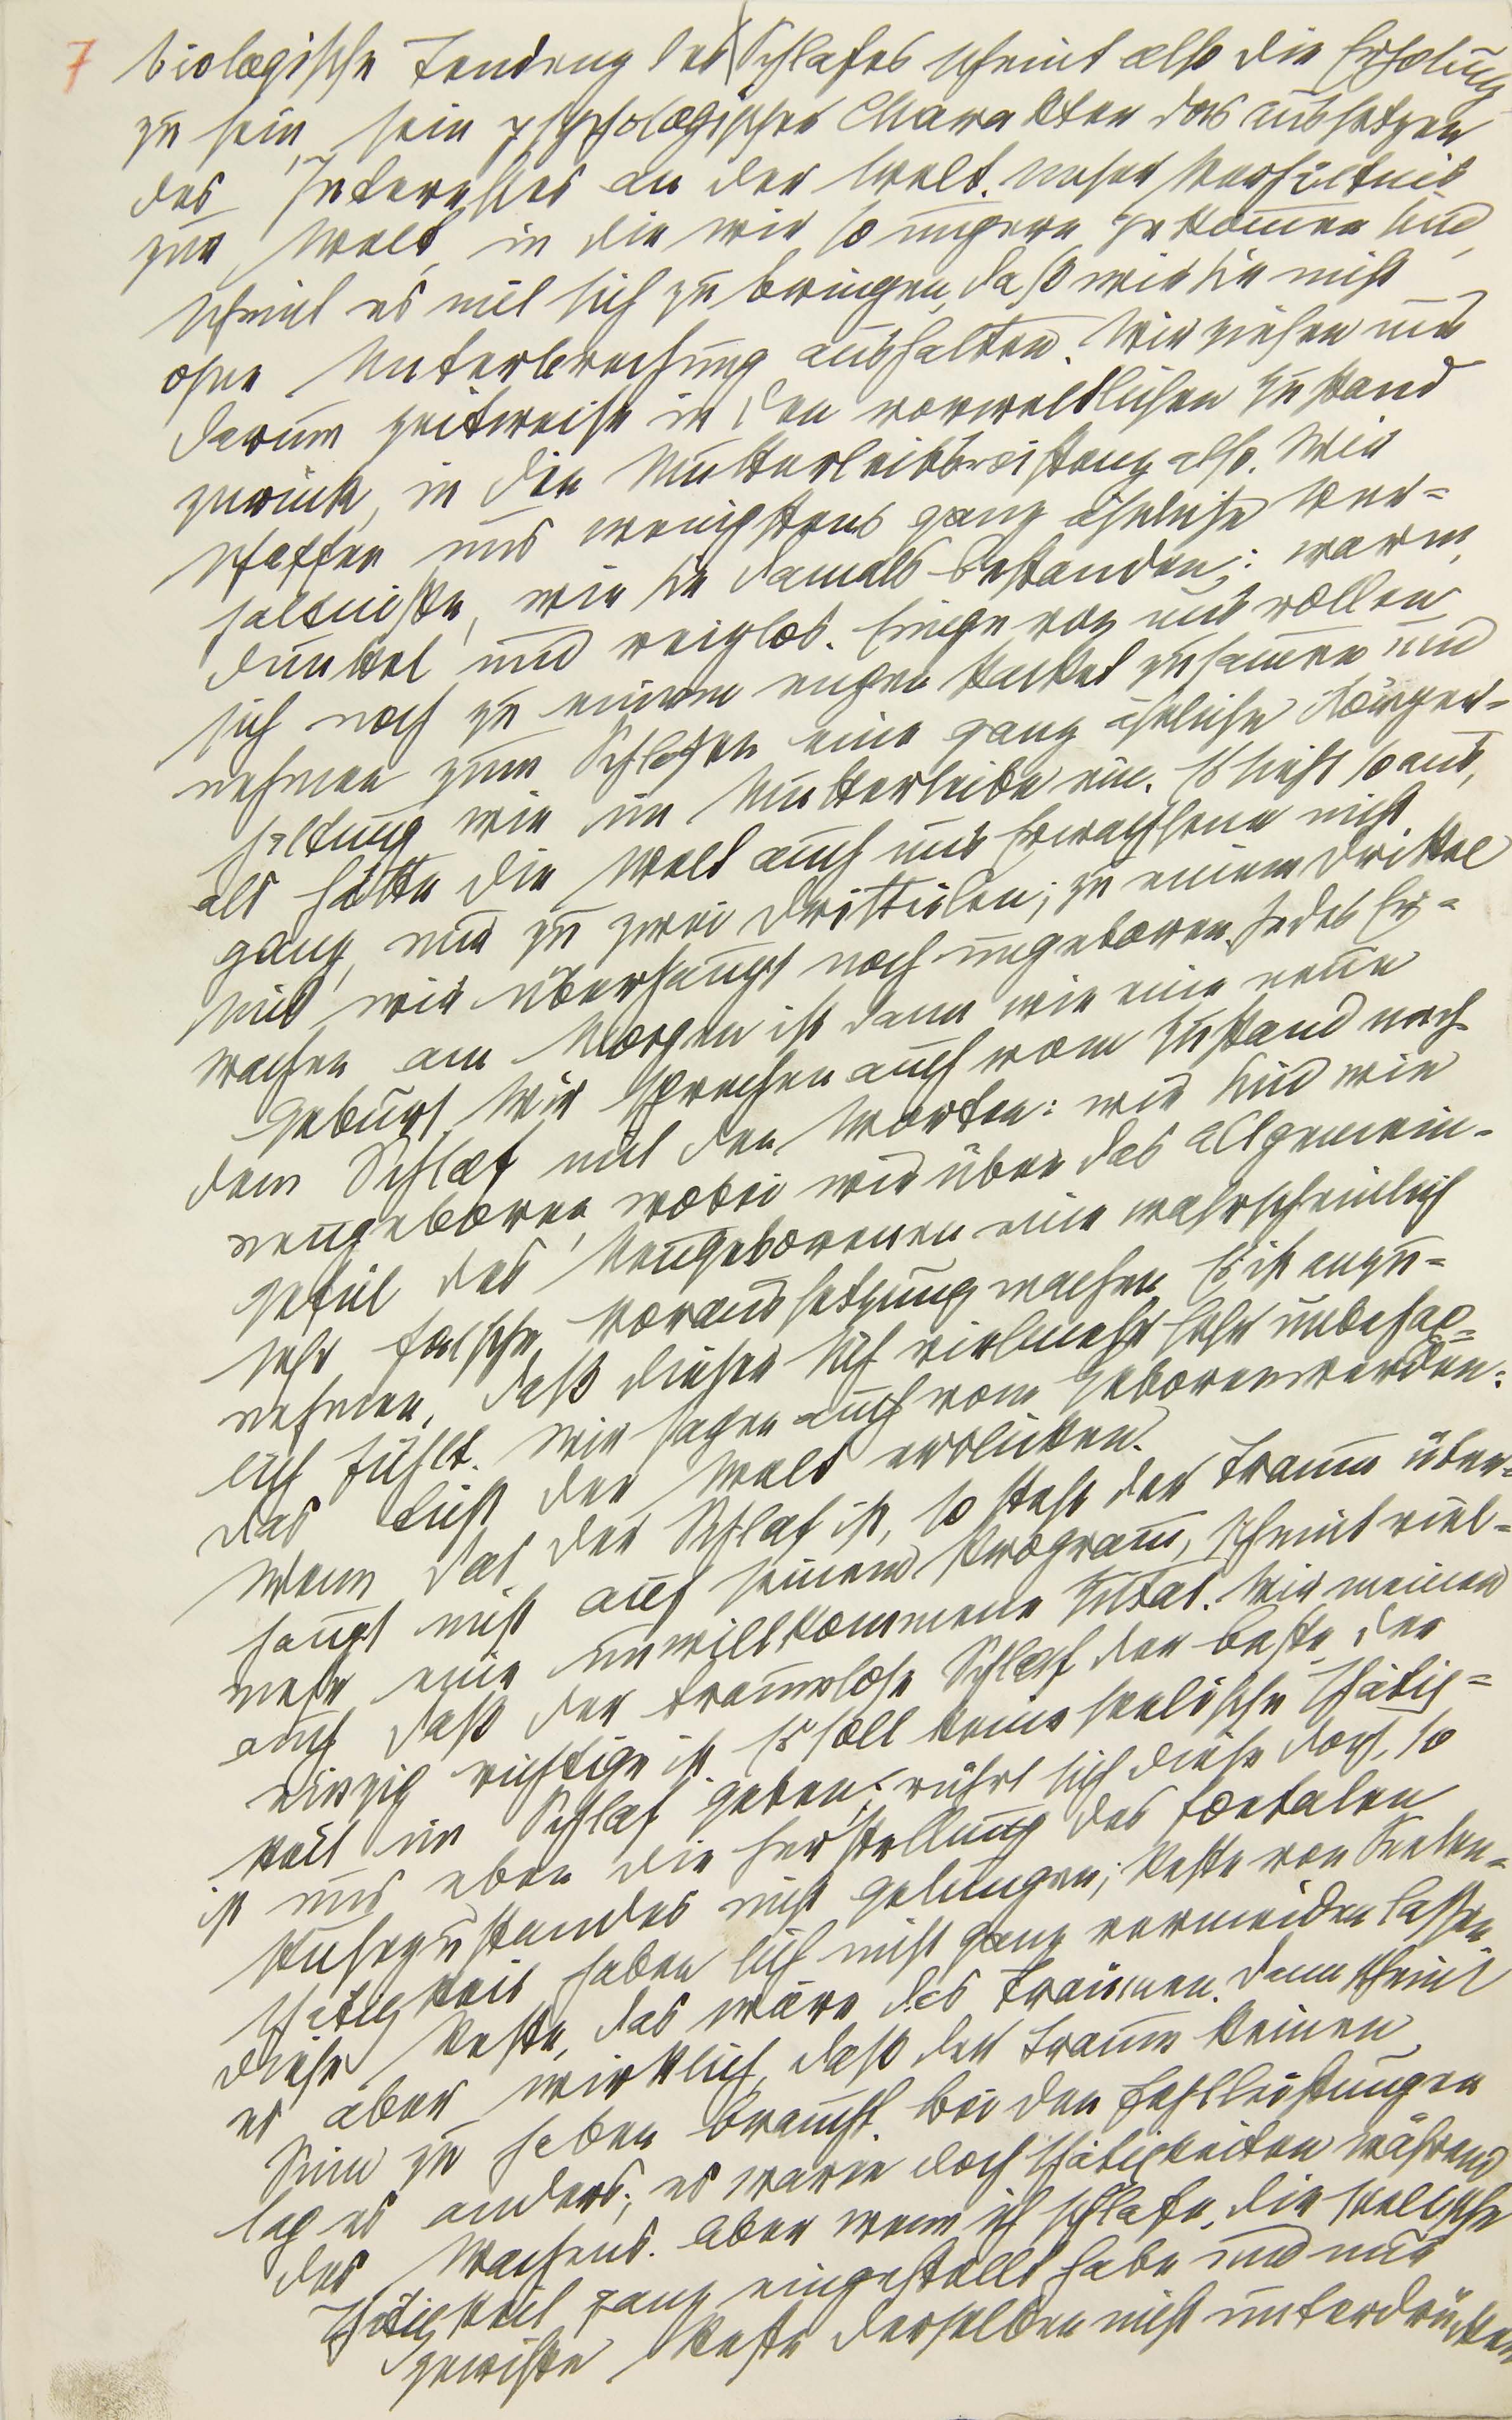 7
biologische Tendenz des Schlafes scheint also die Erholung
zu sein, sein psychologischer Charakter das Aussetzen
des Interesses an der Welt. Unser Verhältnis
zur Welt, in die wir so ungern gekommen sind,
scheint es mit sich zu bringen, daß wir sie nicht
ohne Unterbrechung aushalten. Wir ziehen uns
darum zeitweise in den vorweltlichen Zustand
zurück, in die Mutterleibsexistenz also. Wir
schaffen uns wenigstens ganz ähnliche Ver=
hältnisse, wie sie damals bestanden: warm,
dunkel und reizlos. Einige von uns rollen
sich noch zu einem engen Packet zusamen und
nehmen zum Schlafen eine ganz ähnliche Körper=
haltung wie im Mutterleibe ein. Es sieht so aus,
als hätte die Welt auch uns Erwachsene nicht
ganz, nur zu zwei Dritteilen; zu einem Drittel
sind wir überhaupt noch ungeboren. Jedes Er=
wachen am Morgen ist dann wie eine neue
Geburt. Wir sprechen auch vom Zustand nach
dem Schlaf mit den Worten: wir sind wie
neugeboren, wobei wir über das Allgemein-
gefül des Neugeborenen eine wahrscheinlich
sehr falsche Voraussetzung machen. Es ist anzu=
nehmen, daß dieser sich vielmehr sehr unbehag=
lich fühlt. Wir sagen auch vom Geborenwerden:
das Licht der Welt erblicken.
Wenn das der Schlaf ist, so steht der Traum über=
haupt nicht auf seinem Program, scheint viel=
mehr eine unwillkommene Zutat. Wir meinen
auch, daß der traumlose Schlaf der beste, der
einzig richtige ist. Es soll keine seelische Thätig=
keit im Schlaf geben; rührt sich diese doch, so
ist uns eben die Herstellung des foetalen
Ruhezustandes nicht gelungen; Reste von Seelen=
thätigkeit haben sich nicht ganz vermeiden lassen.
Diese Reste, das wäre das Träumen. Dann scheint
es aber wirklich, daß der Traum keinen
Sinn zu haben braucht. Bei den Fehlleistungen
lag es anders; es waren doch Thätigkeiten während
des Wachens. Aber wenn ich schlafe, die seelische
Thätigkeit ganz eingestellt habe und nur
gewisse Reste derselben nicht unterdrücken